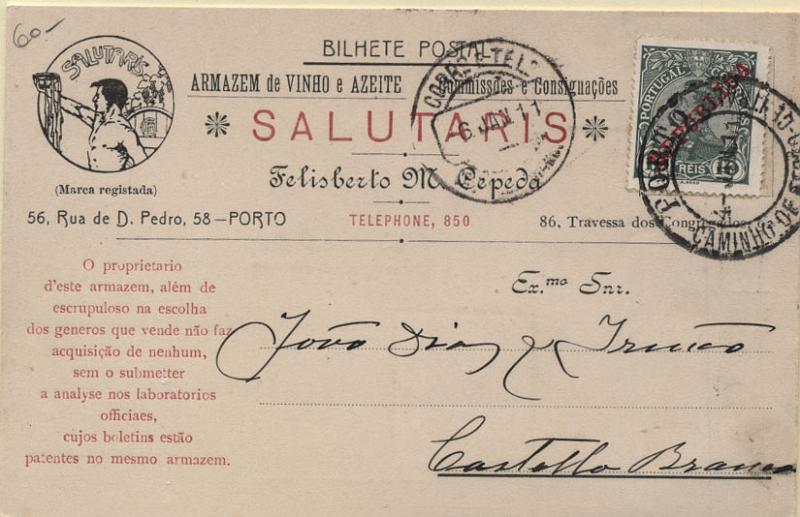 60-
BILHETE POSTAL
SALUTARIS
ARMAZEM de VINHO e AZEITE Commissões e Consignações
SALUTARIS
Felisberto M. Cepeda
(Marca registada)
56, Rua de D. Pedro, 58—PORTO TELEPHONE, 850 86, Travessa dos Congregados
CORREO E TELS
6 JAN 11
PORTUGAL
REPUBLICA
REIS
PORTO
CAMINHO DE
O proprietario
d'este armazem, além de
escrupuloso na escolha
dos generos que vende não faz
acquisição de nenhum,
sem o submetter
a analyse nos laboratorios
officiaes,
cujos boletins estão
patentes no mesmo armazem.
Ex.mo Snr.
João Dias & Irmão
Castello Branco